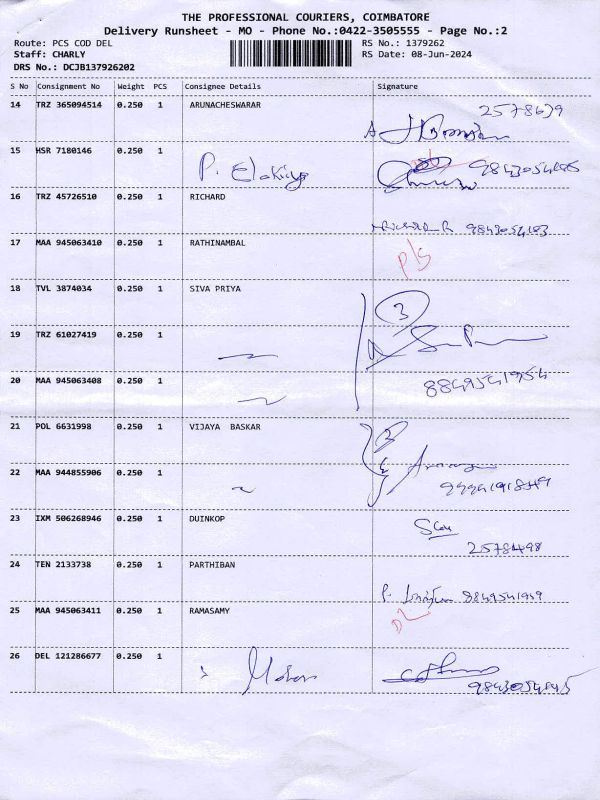 THE PROFESSIONAL COURIERS, COIMBATORE
Delivery Runsheet - MO - Phone No.:0422-3505555 - Page No.:2
Route: PCS COD DEL RS No.: 1379262
Staff: CHARLY RS Date: 08-Jun-2024
DRS No.: DCJB137926202
S No Consignment No Weight PCS Consignee Details Signature
14 TRZ 365094514 0.250 1 ARUNACHESWARAR
15 HSR 7180146 0.250 1 P. Elakiya
16 TRZ 45726510 0.250 1 RICHARD
17 MAA 945063410 0.250 1 RATHINAMBAL P/S
18 TVL 3874034 0.250 1 SIVA PRIYA 3
19 TRZ 61027419 0.250 1
20 MAA 945063408 0.250 1 8849541954
21 POL 6631998 0.250 1 VIJAYA BASKAR
22 MAA 944855906 0.250 1
23 IXM 506268946 0.250 1 DUINKOP 2578498
24 TEN 2133738 0.250 1 PARTHIBAN
25 MAA 945063411 0.250 1 RAMASAMY
26 DEL 121286677 0.250 1 Mohan